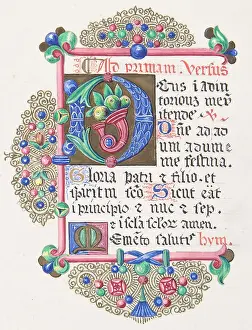 Ad primam. Versus
Deus i adiu
torium meu
itende Do
mine ad ad
iuvadum me
festina.
Gloria patri & filio. et
spiritui sco Sicut eat
i principio & nuc & sep.
& i scla sclor amen.
Meeto salutis hym.